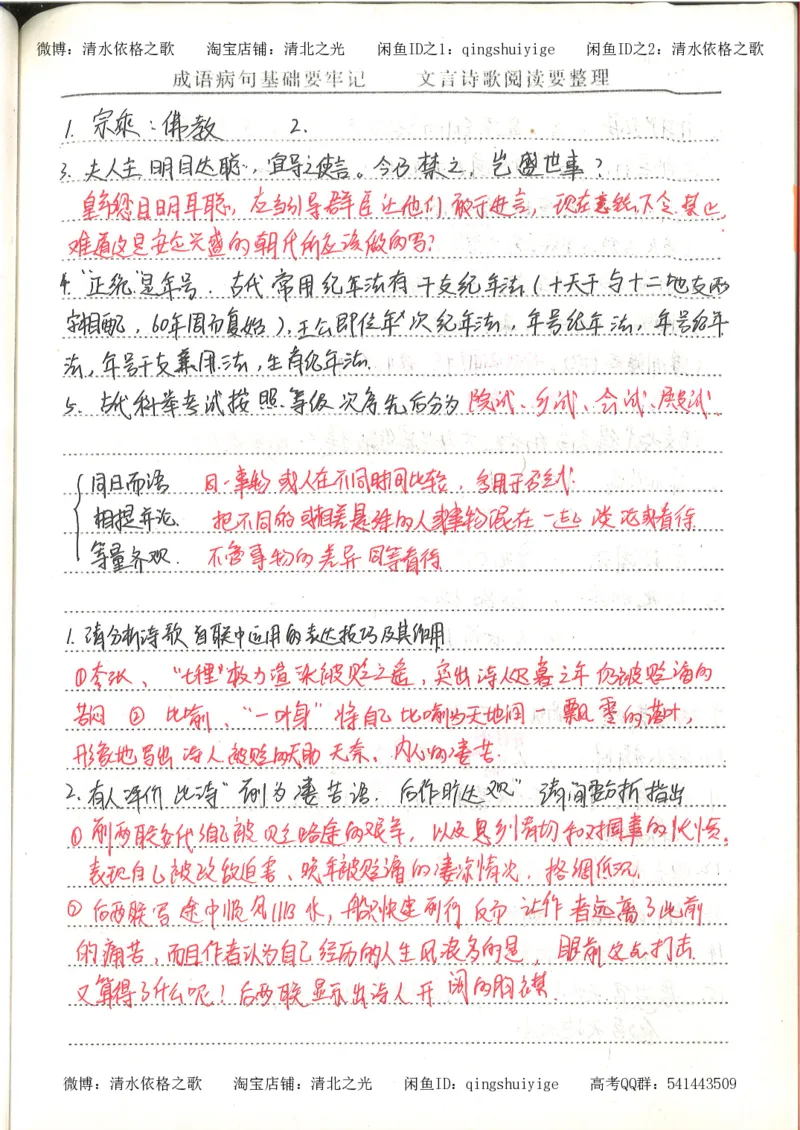 微博：清水依格之歌 淘宝店铺：清北之光 闲鱼ID之1：qingshuiyige 闲鱼ID之2：清水依格之歌
成语病句基础要牢记 文言诗歌阅读要整理
1. 宗乘：佛教 2.
3. 夫人主明目达聪，宜导之使言。今乃禁之，岂盛世事？
皇帝您目明耳聪，应当引导群臣让他们敢于进言，现在悉下令禁止，
难道这是安定兴盛的朝代所应该做的吗？
4. “正统”是年号．古代常用纪年法有干支纪年法（十天干与十二地支两
字相配，60年周而复始），王公即位年次纪年法，年号纪年法，年号纪年
法，年号干支兼用法，生肖纪年法．
5. 古代科举考试按照等级次序先后分为院试、乡试、会试、殿试．
同日而语 同一事物或人在不同时间比较，多用于否定式．
相提并论． 把不同的或相差悬殊的人或事物混在一起谈论或看待
等量齐观． 不管事物的差异同等看待
1. 请分析诗歌首联中运用的表达技巧及其作用
①夸张、“七程”极力渲染被贬之遥，突出诗人迟暮之年仍被贬谪的
苦闷 ② 比喻、“一叶身”将自己比喻为天地间一飘零的落叶，
形象地写出诗人被贬的无助无奈、内心的凄苦．
2. 有人评价此诗“前为凄苦语．后作旷达观”请简要分析指出
① 前两联交代自己被贬路途的艰辛，以及思乡情切和对国事的忧烦．
表现自己被政敌迫害、晚年被贬谪的凄凉情况．格调低沉
② 后两联写途中顺风顺水，船只快速前行反而让作者远离了此前
的痛苦，而且作者认为自己经历的人生风浪多的是，眼前这点打击
又算得了什么呢！后两联显示出诗人开阔的胸襟．
微博：清水依格之歌 淘宝店铺：清北之光 闲鱼ID：qingshuiyige 高考QQ群：541443509